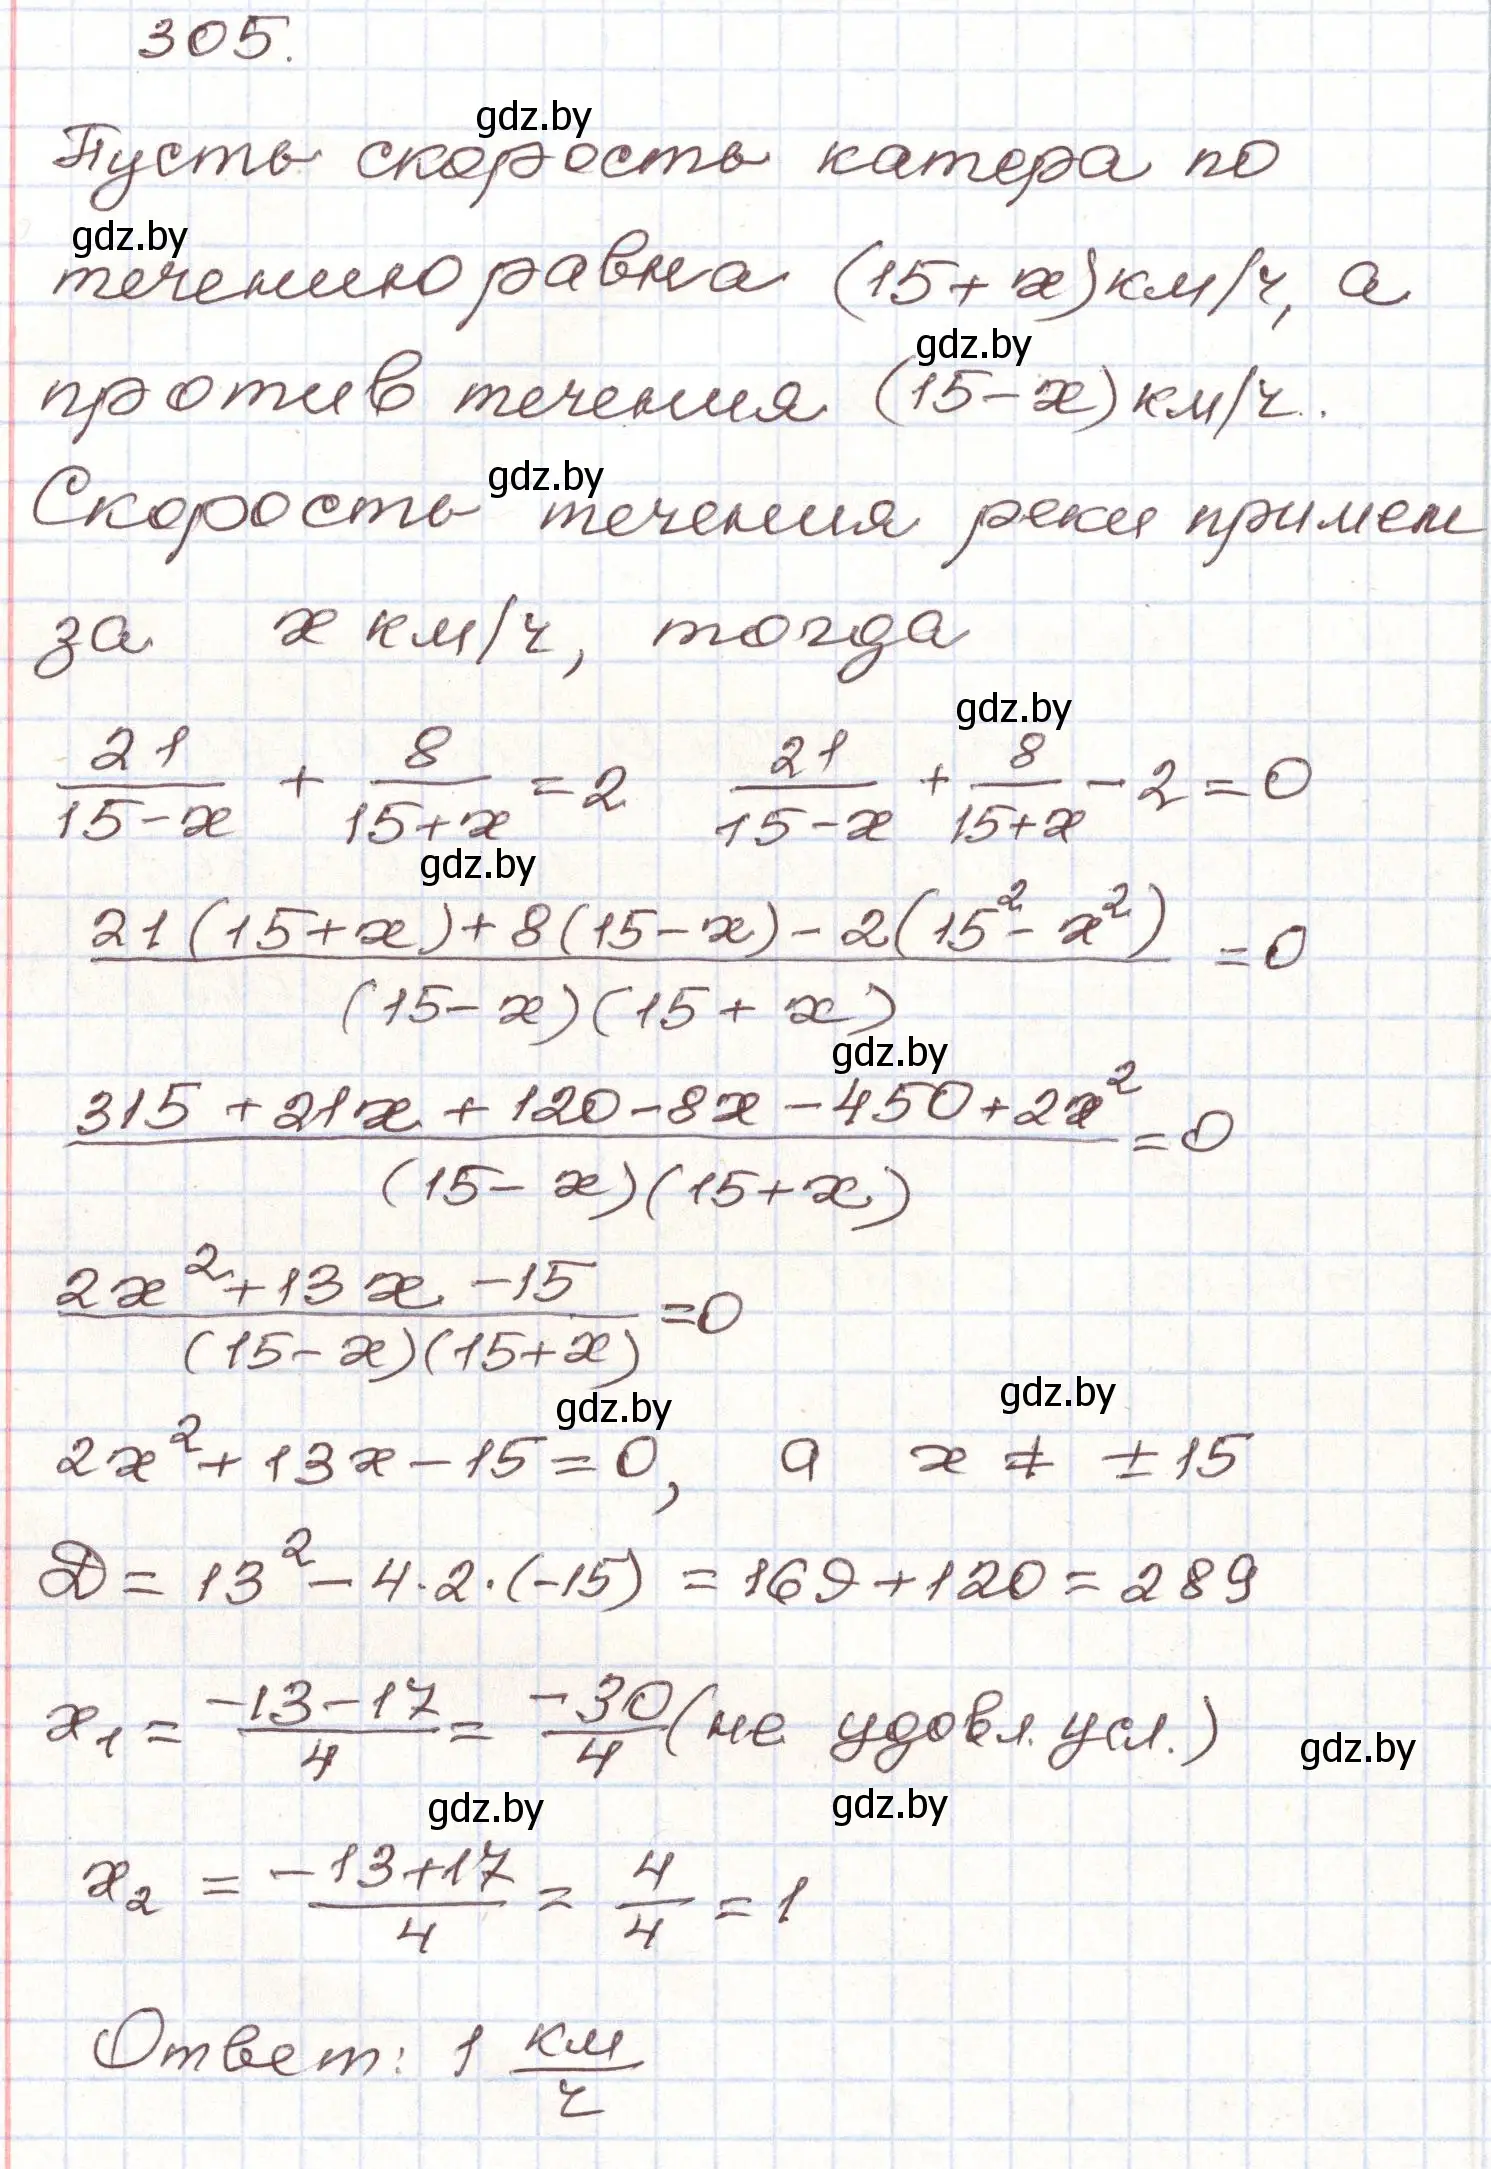 305.
gdz.by
Пусть скорость катера по
gdz.by
течению равна (15+x) км/ч, а
gdz.by
против течения (15-x) км/ч.
gdz.by
Скорость течения реки примем
за x км/ч, тогда
gdz.by
21/(15-x) + 8/(15+x) = 2   21/(15-x) + 8/(15+x) - 2 = 0
gdz.by
(21(15+x)+8(15-x)-2(15²-x²))/((15-x)(15+x)) = 0
gdz.by
(315+21x+120-8x-450+2x²)/((15-x)(15+x)) = 0
(2x²+13x-15)/((15-x)(15+x)) = 0
gdz.by gdz.by
2x²+13x-15=0, а x ≠ ±15
D = 13²-4·2·(-15) = 169+120 = 289
x₁ = (-13-17)/4 = -30/4 (не удовл. усл.)
gdz.by
gdz.by gdz.by
x₂ = (-13+17)/4 = 4/4 = 1
Ответ: 1 км/ч